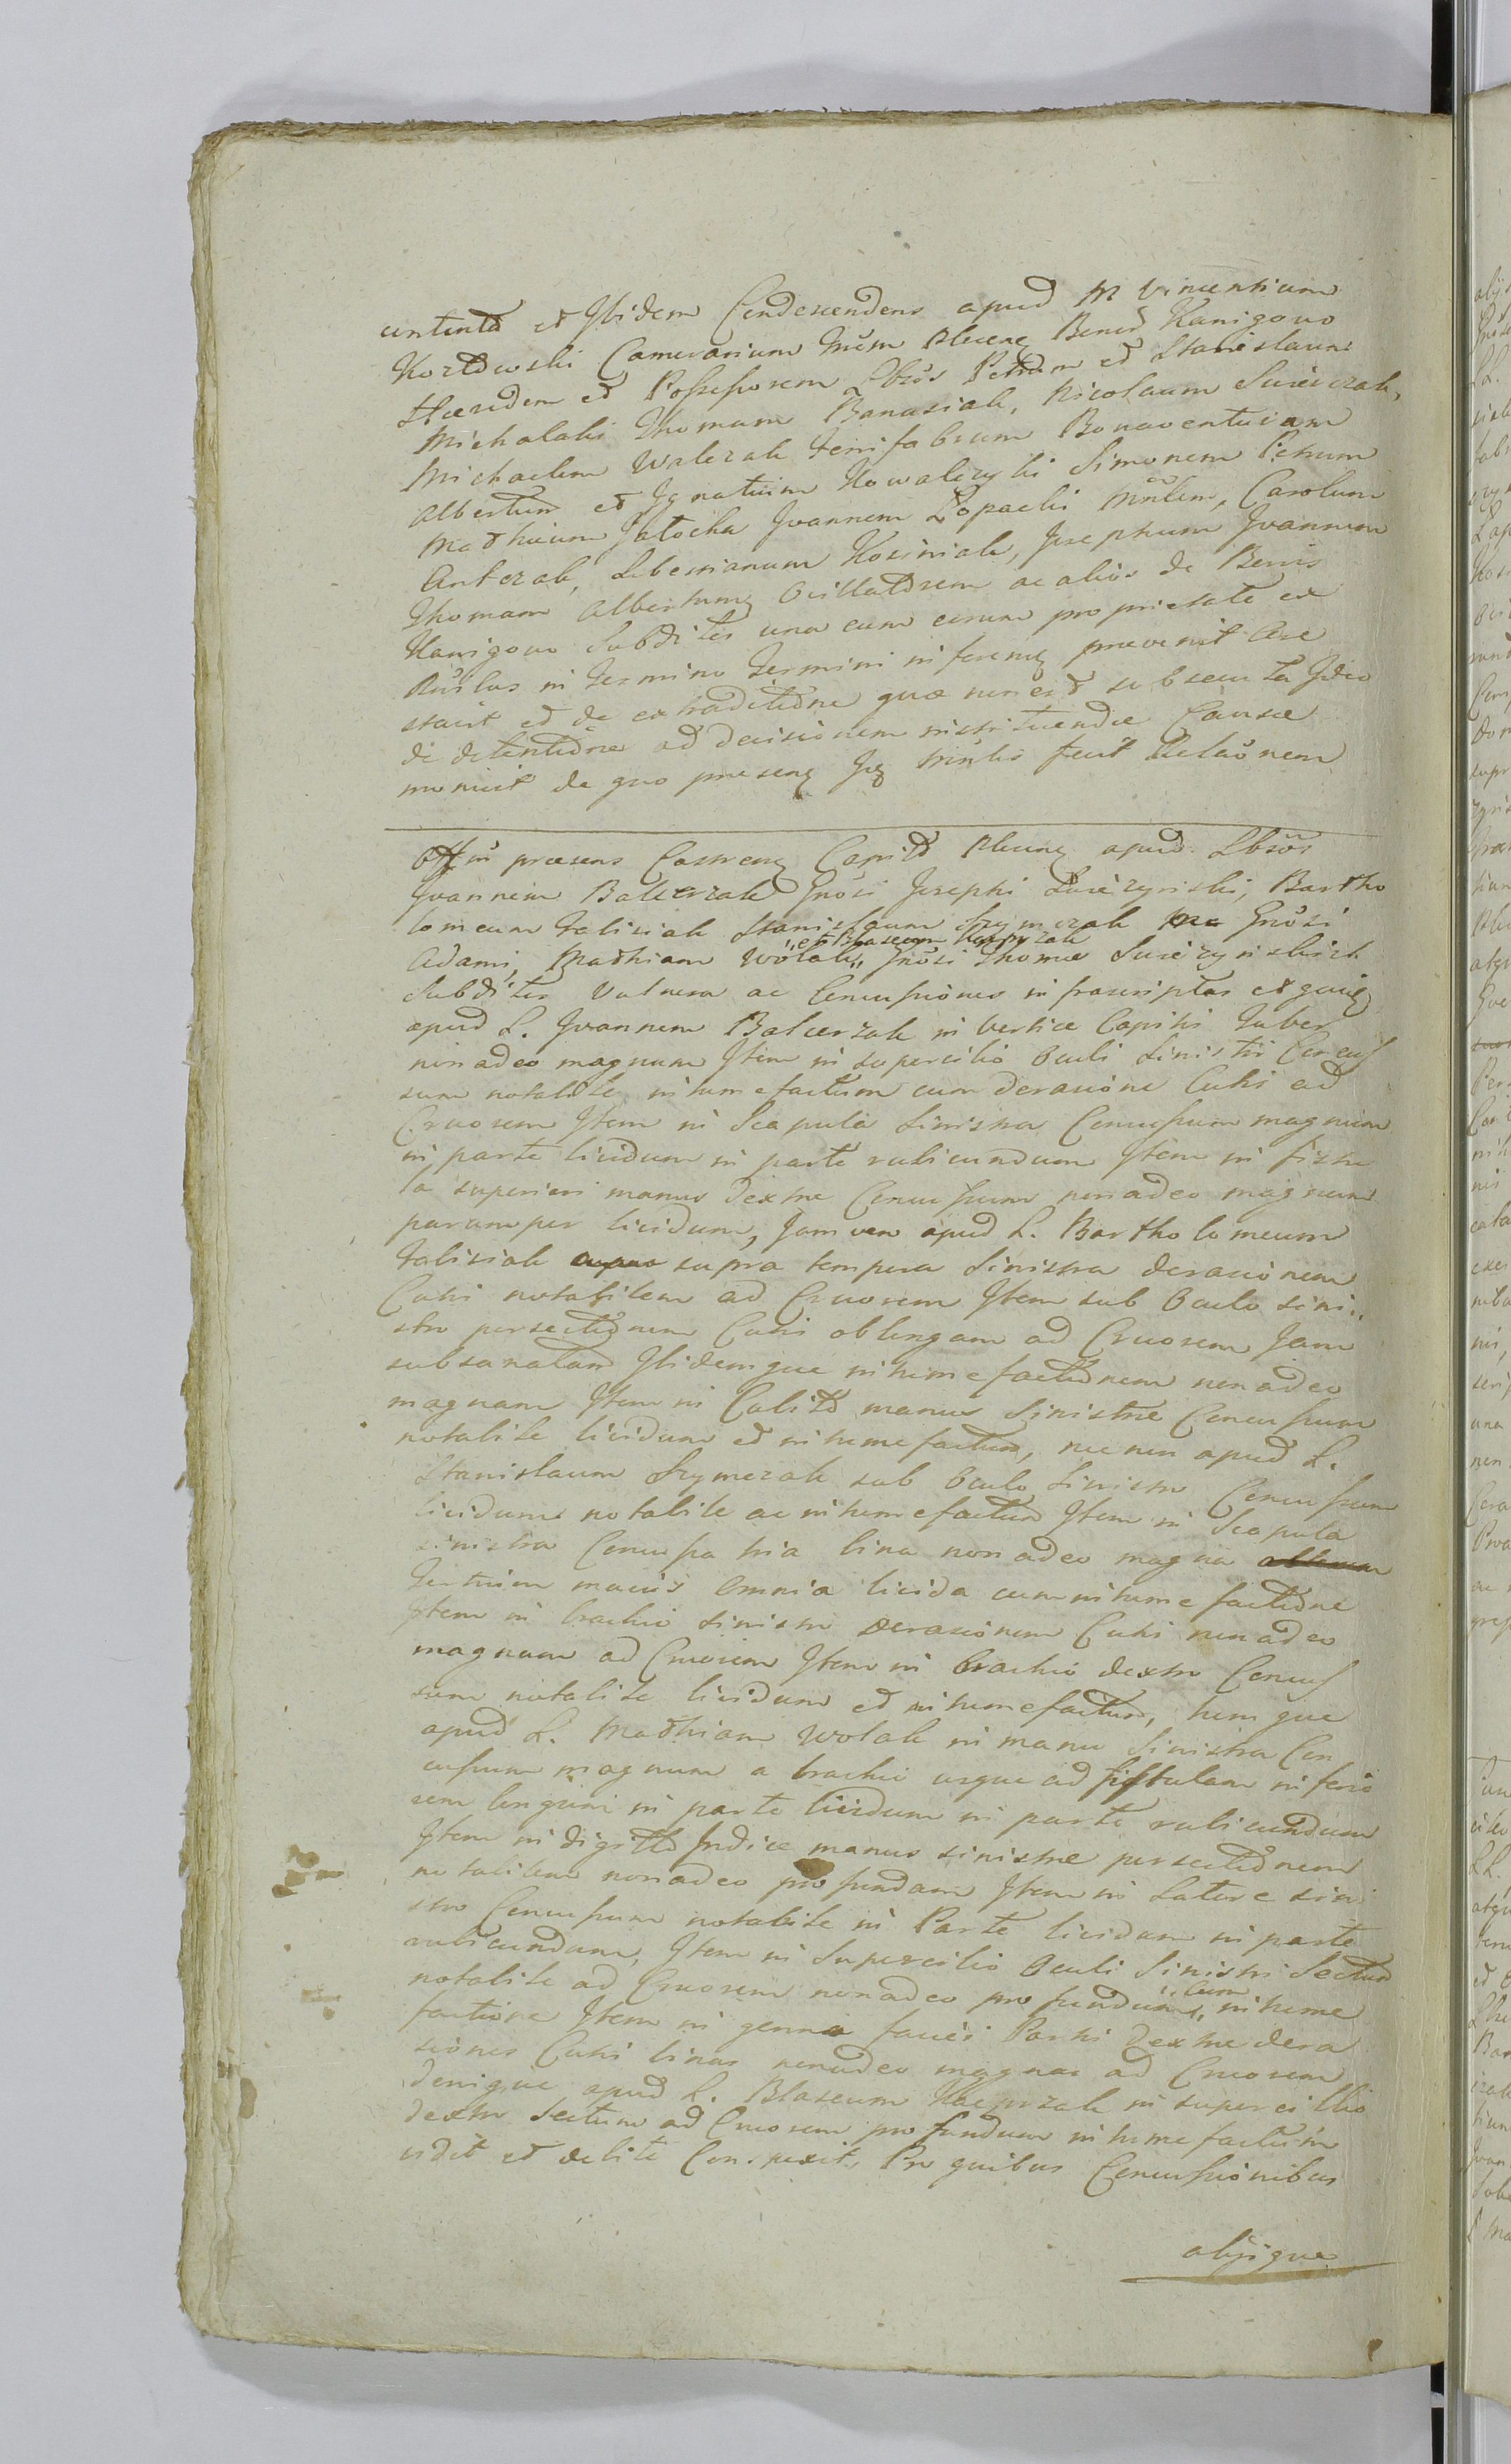 et Ibidem Condescendens apud M Vincentium
Kozłowski Camerarium Bonor Kanigowo
Hæredem et Possessorem Lbros Petrum et Stanislaum
Michalaki Thomam Banasiak, Nicolaum
Michaelem Walczak ferrifabrum Bonaventuram
Albertum et Ignatium Kowalczyki Simonem Petrum
Mathæum Jałocha Joannem Łopacki
Antczak, Kosiniak, Josephum Joannem
Thomam Albertumq ac alios de Bonis
Kanigowo Subditos una cum eorum proprietate ex
in termino termini prævenit Are
stavit et de extraditione quæ non est subsecuta Ideo
de detentione ad decisionem instituendæ Causæ
monuit de quo præsens fecit Relaonem
Offm præsens Castrens Capitlo apud Lbros
Joannem Balcerzak Gnosi Josephi Bartho
lomeum Galisiak Stanislaum Szymczak Gnosi
Adami, Mathiam Wolak „et Blaseum Kacprzak„ Gnosi Thomæ
Subditos Vulnera ac Concussiones infrascriptas
apud L. Joannem Balcerzak in Vertice Capitis Tuber
non adeo magnum Item in supercilio Oculi Sinistri Concus
sum notabile intumefactum cum derasione Cutis ad
Cruorem Item in Scapula Sinistra Concussum magnum
in parte lividum in parte rubicundum Item in fistu
la superiori manus dextræ Concussum non adeo magnum
parumper lividum, Jam vero apud L. Bartholomeum
Galisiak supra tempora Sinistra derasionem
Cutis notabilem ad Cruorem Item sub Oculo sini„
stro persectionem Cutis oblongam ad Cruorem Jam
subsanatam Ibidemque intumefactionem non adeo
magnam Item in Cubito manus Sinistræ Concussum
notabile lividum et intumefactum, nec non apud L.
Stanislaum Szymczak sub Oculo Sinistro Concussum
lividum notabile ac intumefactum Item in Scapula
sinistra Concussa tria bina non adeo magna
tertium maius Omnia livida cum intumefactione
Item in brachio sinistro derasionem Cutis non adeo
magnam ad Cruorem Item in brachio dextro Concus
sum notabile lividum et intumefactum, tumque
apud L. Mathiam Wolak in manu Sinistra Con
cussum magnum a brachio usque ad fistulam inferio
rem in parte lividum in parte rubicundum
Item in digitto Indice manus sinistræ persectionem
notabilem non adeo profundam Item in Latere sini
stro Concussum notabile in Parte lividum in parte
rubicundum, Item in Supercilio Oculi Sinistri Sectum
notabile ad Cruorem non adeo profundum „cum„ intume
factione Item in genna faciei Partis dextræ dera
siones Cutis binas non adeo magnas ad Cruorem
denique apud L. Blaseum Kacprzak in supercillio
dextro Sectum ad Cruorem profundum intumefactum
vidit et debite Conspexit. Pro quibus Concussionibus
alijsque